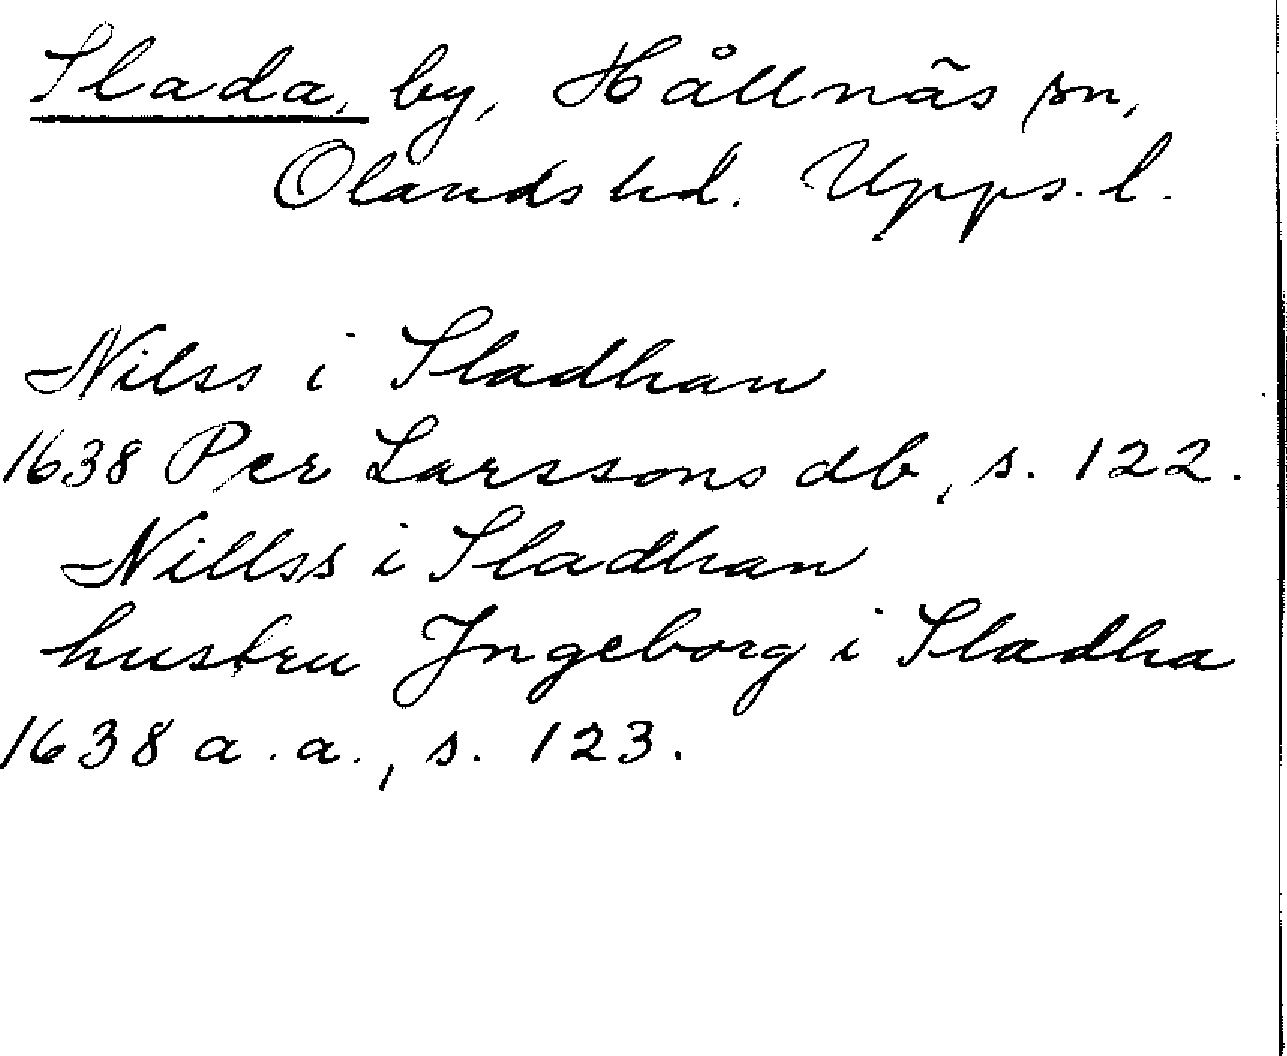 Slada, by, Hållnäs sn,
Olands hd. Upps. l.
Nilss i Sladhan
1638 Per Larssons db, s. 122.
Nillss i Sladhan
hustru Ingeborg i Sladha
1638 a.a., s. 123.